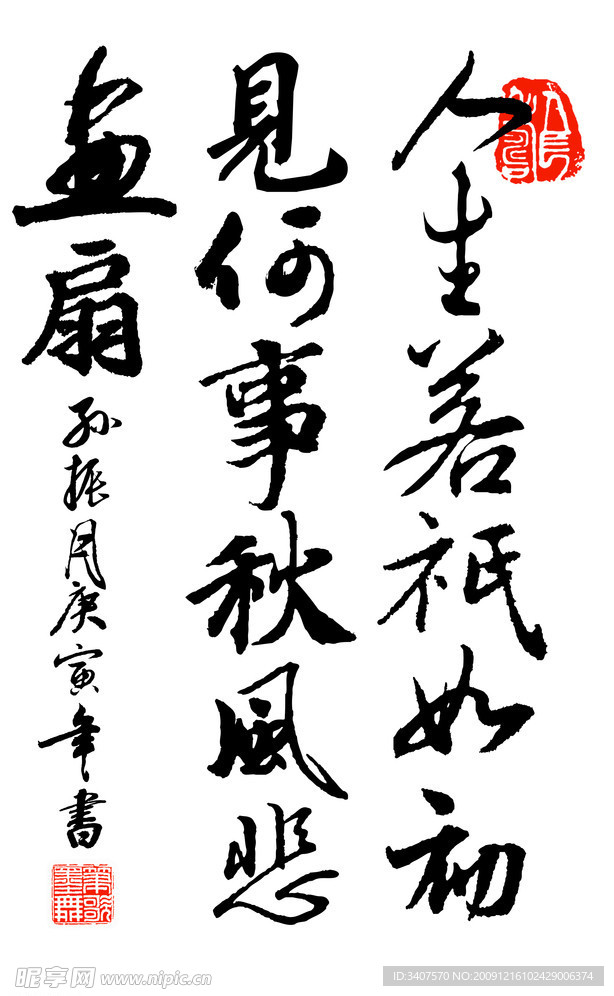 人生若祇如初
見何事秋風悲
畫扇
孙振月庚寅年書
筆歌墨舞
昵享网 www.nipic.cn
ID:3407570 NO:20091216102429006374